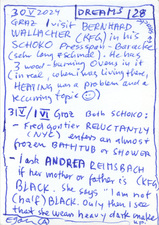 30.V.2024 DREAMS 128
GRAZ / I visit BERNHARD
WALLACHER (KFG) in his
SCHOKO Pressspan-Baracke
(sehr . He has
3 warm-burning ovens in it
(in real, when I was living there,
HEATING was a problem and a
recurring topic ☺)
31/V / VI GRAZ Both SCHOKO:
- Fred goutier RELUCTANTLY
(NYC) enters an almost
frozen BATHTUB or SHOWER
- I ask ANDREA REIMSBACH
if her mother or father is (KFG)
BLACK. She says "I am not
(half) BLACK. Only then I see
that she wears heavy dark make
up.